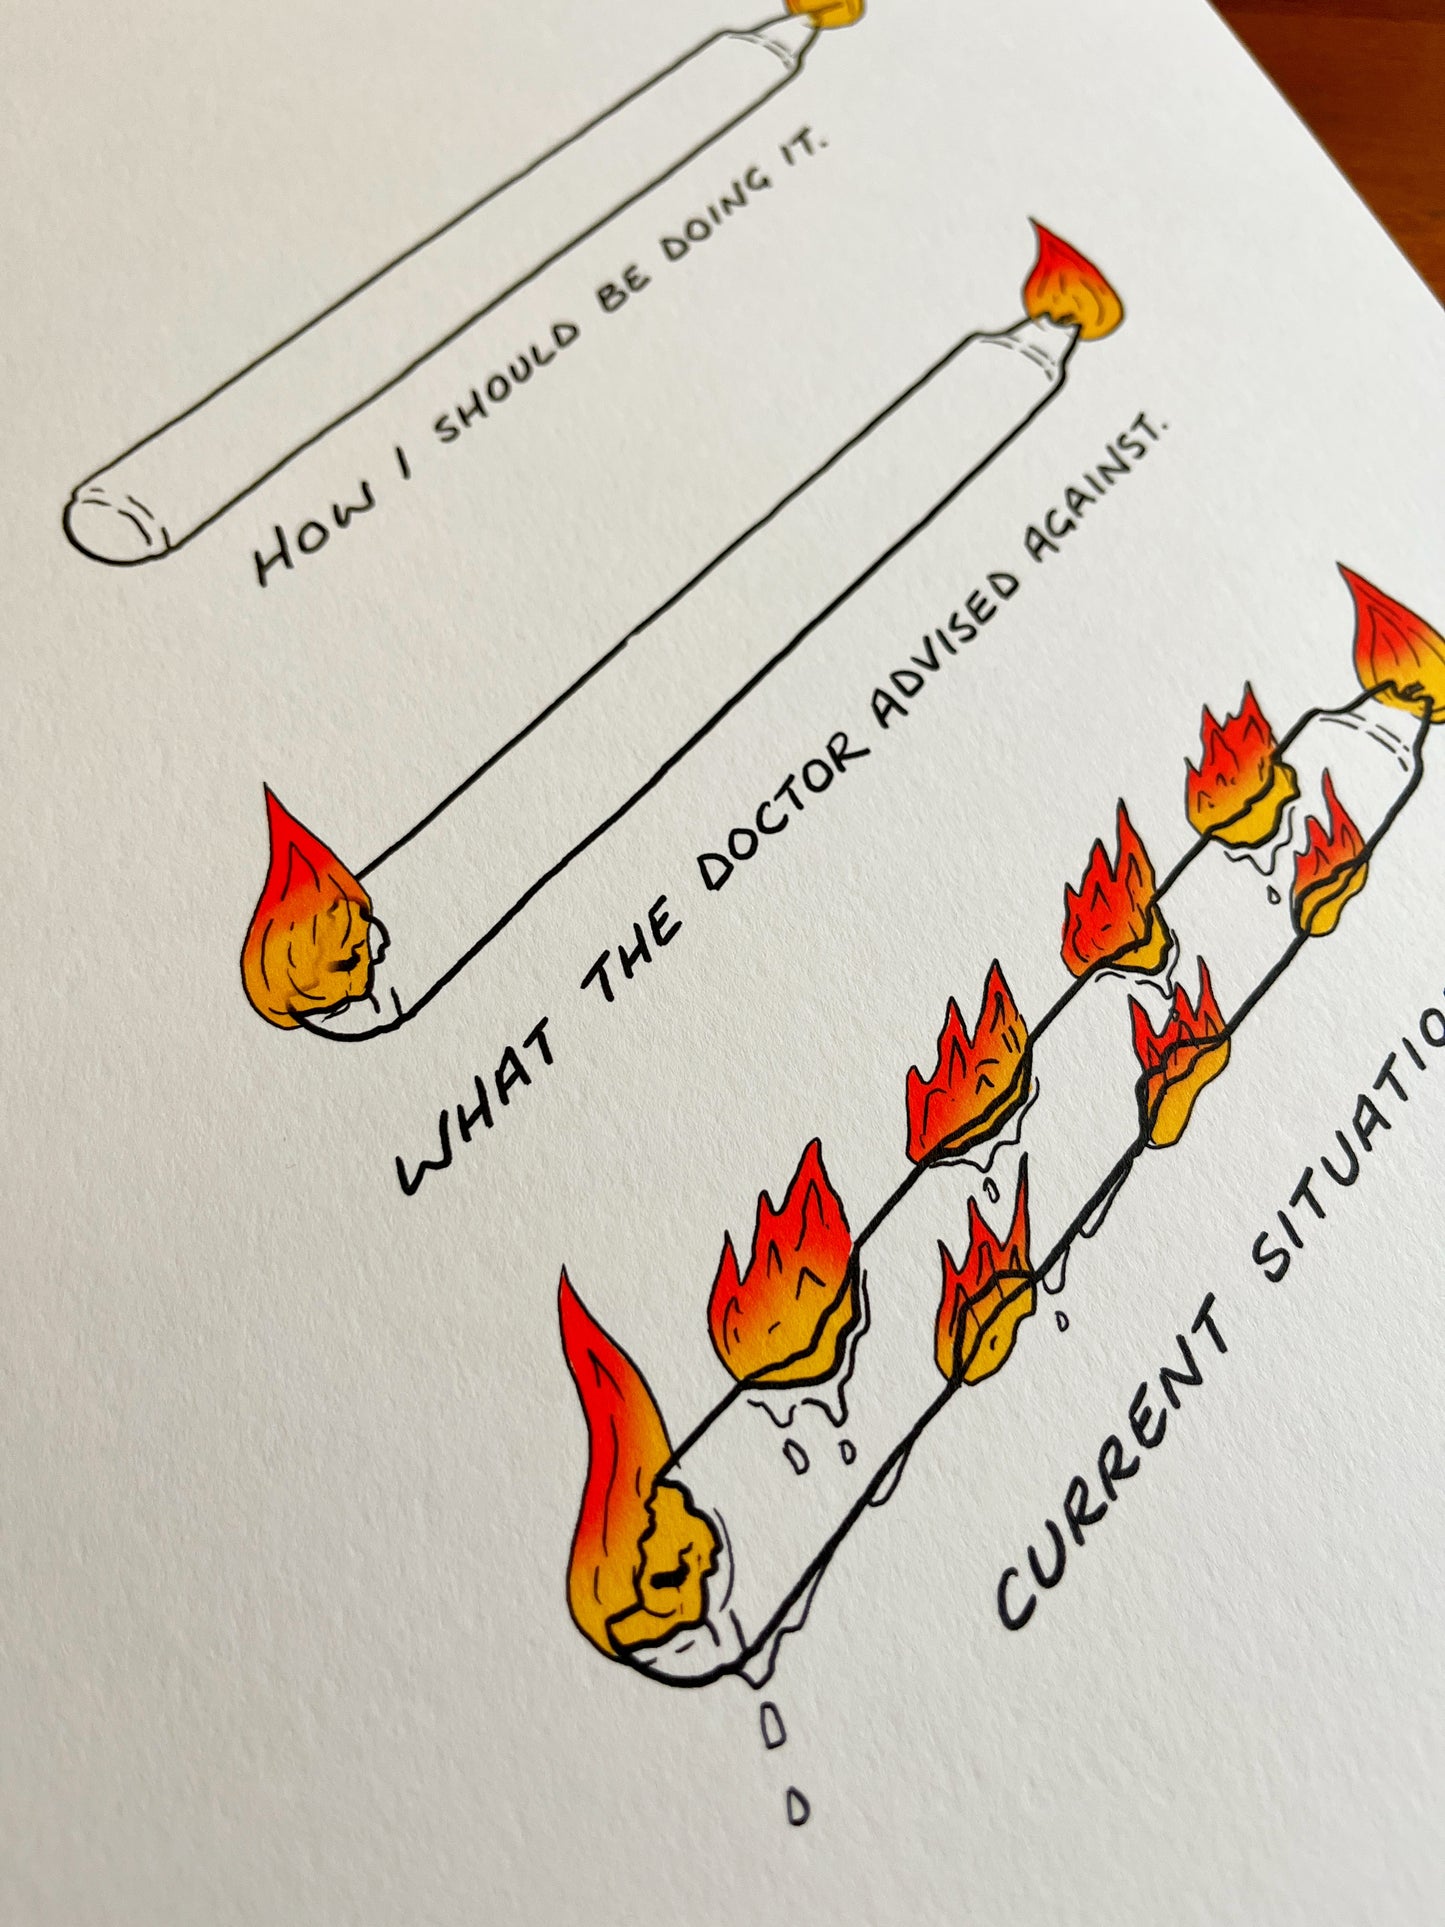 HOW I SHOULD BE DOING IT.
WHAT THE DOCTOR ADVISED AGAINST.
CURRENT